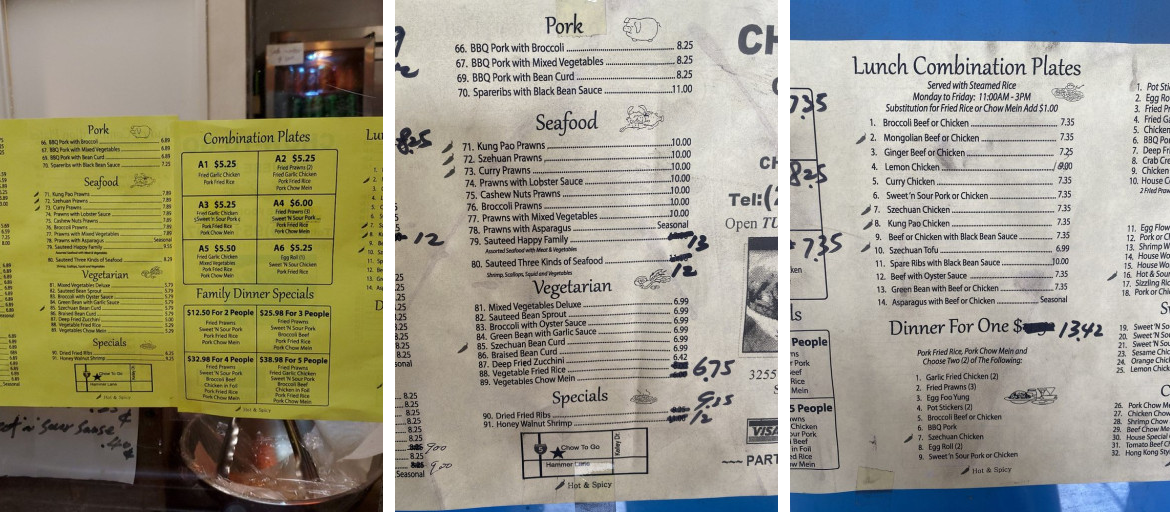 Pork
66. BBQ Pork with Broccoli 6.89
67. BBQ Pork with Mixed Vegetables 6.89
69. BBQ Pork with Bean Curd 6.89
70. Spareribs with Black Bean Sauce 7.25
Seafood
71. Kung Pao Prawns 7.89
72. Szehuan Prawns 7.89
73. Curry Prawns 7.89
74. Prawns with Lobster Sauce 7.89
75. Cashew Nuts Prawns 7.89
76. Broccoli Prawns 7.89
77. Prawns with Mixed Vegetables 7.89
78. Prawns with Asparagus Seasonal
79. Sauteed Happy Family
80. Sauteed Three Kinds of Seafood
Vegetarian
81. Mixed Vegetables Deluxe 5.79
82. Sauteed Bean Sprout 5.79
83. Broccoli with Oyster Sauce 5.79
84. Green Bean with Garlic Sauce 5.79
85. Szechuan Bean Curd 5.79
86. Braised Bean Curd 5.79
87. Deep Fried Zucchini
88. Vegetable Fried Rice
89. Vegetables Chow Mein
Specials
90. Dried Fried Ribs
91. Honey Walnut Shrimp
Chow To Go
Hammer Lane
Hot & Spicy
Combination Plates
A1 $5.25
Fried Garlic Chicken
Pork Fried Rice
A2 $5.25
Fried Prawns (2)
Fried Garlic Chicken
Pork Chow Mein
A3 $5.25
Fried Garlic Chicken
Sweet 'N Sour Pork
Pork Fried Rice
A4 $6.00
Fried Prawns (3)
Sweet 'N Sour Pork
Pork Fried Rice
A5 $5.50
Fried Garlic Chicken
Mixed Vegetables
Pork Fried Rice
Pork Chow Mein
A6 $5.25
Egg Roll (1)
Sweet 'N Sour Pork
Pork Chow Mein
Family Dinner Specials
$12.50 For 2 People
Fried Prawns
Sweet 'N Sour Pork
Pork Fried Rice
Pork Chow Mein
$25.98 For 3 People
Fried Prawns
Sweet 'N Sour Pork
Broccoli Beef
Pork Fried Rice
Pork Chow Mein
$32.98 For 4 People
Fried Prawns
Sweet 'N Sour Pork
Broccoli Beef
Chicken in Foil
Pork Fried Rice
Pork Chow Mein
$38.98 For 5 People
Fried Prawns
Fried Garlic Chicken
Sweet 'N Sour Pork
Broccoli Beef
Chicken in Foil
Pork Fried Rice
Pork Chow Mein
Hot & Spicy
n' sour sause
.40
Pork
66. BBQ Pork with Broccoli 8.25
67. BBQ Pork with Mixed Vegetables 8.25
69. BBQ Pork with Bean Curd 8.25
70. Spareribs with Black Bean Sauce 11.00
Seafood
71. Kung Pao Prawns 10.00
72. Szehuan Prawns 10.00
73. Curry Prawns 10.00
74. Prawns with Lobster Sauce 10.00
75. Cashew Nuts Prawns 10.00
76. Broccoli Prawns 10.00
77. Prawns with Mixed Vegetables 10.00
78. Prawns with Asparagus Seasonal
79. Sauteed Happy Family 13
Assorted Seafood with Meat & Vegetables
80. Sauteed Three Kinds of Seafood 12
Shrimp, Scallops, Squid and Vegetables
Vegetarian
81. Mixed Vegetables Deluxe 6.99
82. Sauteed Bean Sprout 6.99
83. Broccoli with Oyster Sauce 6.99
84. Green Bean with Garlic Sauce 6.99
85. Szechuan Bean Curd 6.99
86. Braised Bean Curd 6.99
87. Deep Fried Zucchini 6.42
88. Vegetable Fried Rice 675
89. Vegetables Chow Mein
Specials
90. Dried Fried Ribs
91. Honey Walnut Shrimp 12
5
Chow To Go
Kelley Dr.
Hammer Lane
Hot & Spicy
825
12
8.25
8.25
8.25
8.25
900
Seasonal
CH
CH
Tel:(
Open TU
3255
VISA
~~~ PART
735
825
735
Lunch Combination Plates
Served with Steamed Rice
Monday to Friday: 11:00AM - 3PM
Substitution for Fried Rice or Chow Mein Add $1.00
1. Broccoli Beef or Chicken 7.35
2. Mongolian Beef or Chicken 7.35
3. Ginger Beef or Chicken 7.25
4. Lemon Chicken
5. Curry Chicken 7.35
6. Sweet 'n Sour Pork or Chicken 7.35
7. Szechuan Chicken 7.35
8. Kung Pao Chicken 7.35
9. Beef or Chicken with Black Bean Sauce 7.35
10. Szechuan Tofu 6.99
11. Spare Ribs with Black Bean Sauce 10.00
12. Beef with Oyster Sauce 7.35
13. Green Bean with Beef or Chicken 7.35
14. Asparagus with Beef or Chicken Seasonal
Dinner For One $ 1342
Pork Fried Rice, Pork Chow Mein and
Choose Two (2) of The Following:
1. Garlic Fried Chicken (2)
2. Fried Prawns (3)
3. Egg Foo Yung
4. Pot Stickers (2)
5. Broccoli Beef or Chicken
6. BBQ Pork
7. Szechuan Chicken
8. Egg Roll (2)
9. Sweet 'n Sour Pork or Chicken
Hot & Spicy
1. Pot Sti
2. Egg Ro
3. Fried
4. Fried Ga
5. Chicken
6. BBQ Po
7. Deep F
8. Crab C
9. Chicken
10. House
2 Fried Praw
11. Egg Flow
12. Pork or Ch
13. Shrimp W
14. House
15. House Wo
16. Hot & Sour
17. Sizzling Ric
18. Pork or Chic
19. Sweet 'N So
20. Sweet 'N Sou
21. Sweet 'N Sou
23. Sesame Chic
24. Orange Chick
25. Lemon Chicke
26. Pork Chow Me
27. Chicken Chow
28. Shrimp Chow
29. Beef Chow Me
30. House Special
31. Tomato Beef C
32. Hong Kong Sty